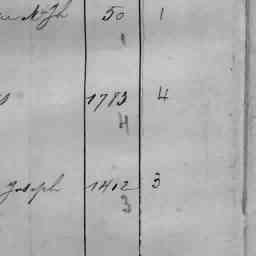 50 1
1
1783 4
4
Joseph 1412 3
3